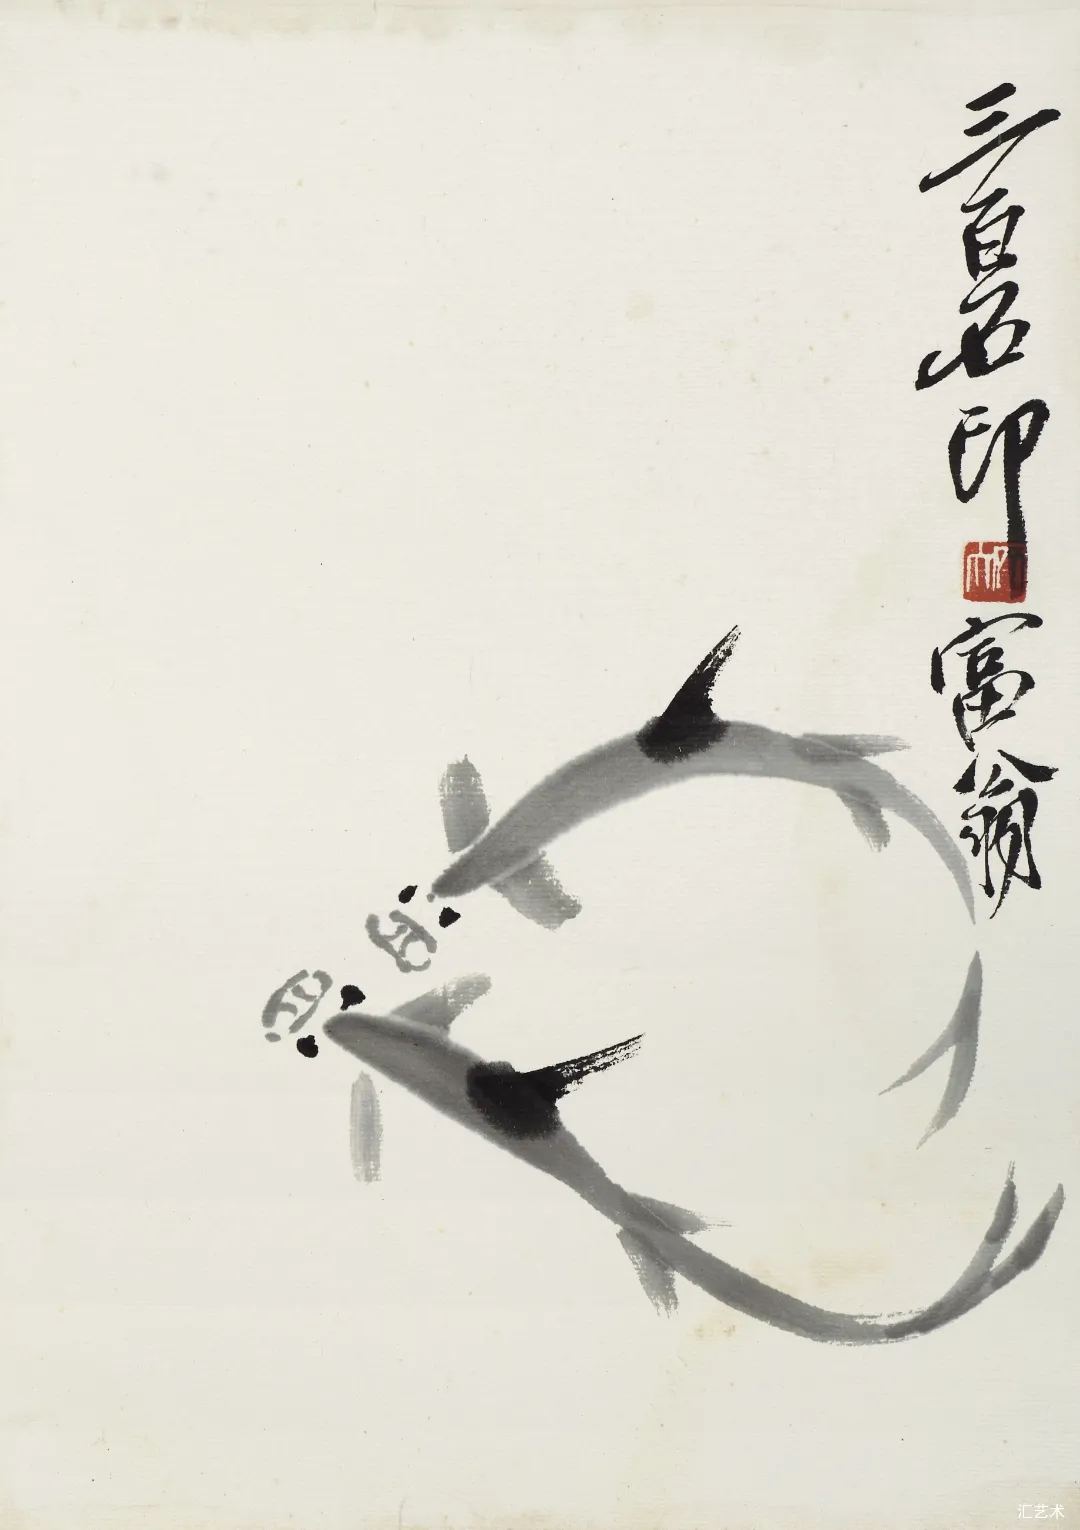 三百石印富翁
汇艺术